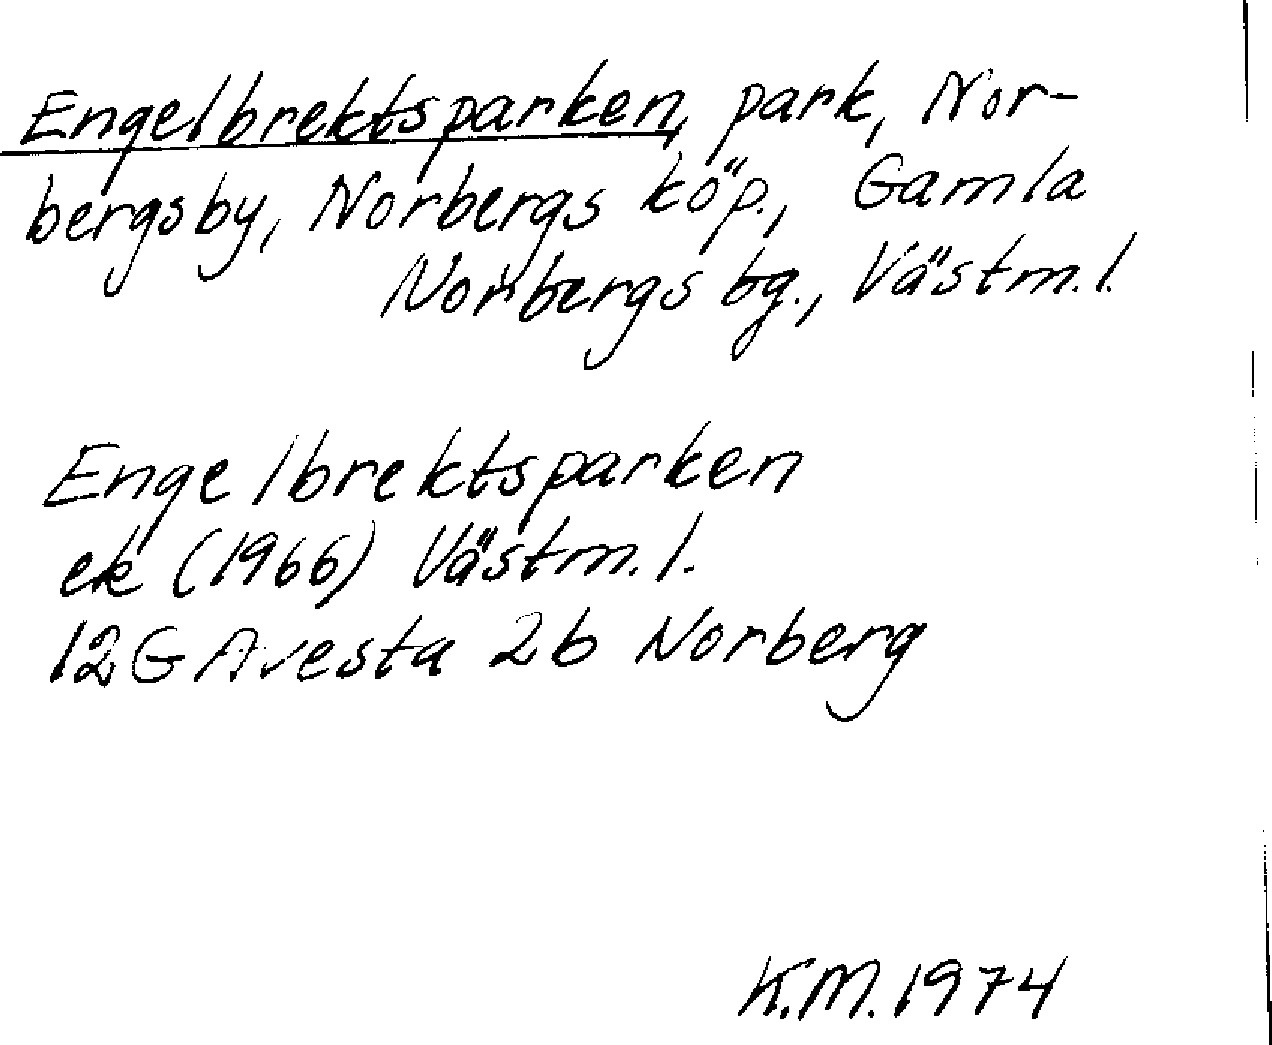 Engelbrektsparken, park, Nor-
bergsby, Norbergs köp., Gamla
Norbergs bg., Västm.l.
Engelbrektsparken
ek (1966) Västm.l.
12G Avesta 2b Norberg
K.M. 1974